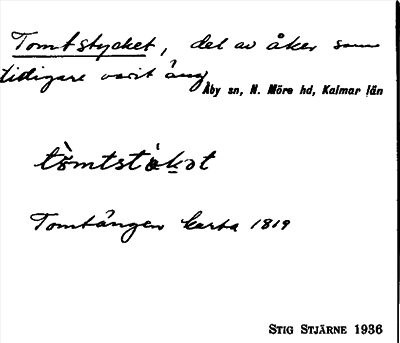 Tomtstycket, del av åker som
tidigare varit äng
Åby sn, N. Möre hd, Kalmar län
tòmtstỳkət
Tomtängen karta 1819
STIG STJÄRNE 1936